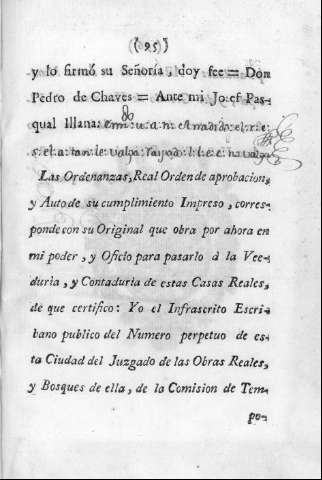 (25)
y lo firmó su Señoría, doy fee = Don
Pedro de Chaves = Ante mi Josef Pas-
qual Illana:
Las Ordenanzas, Real Orden de aprobacion,
y Auto de su cumplimiento Impreso, corres-
ponde con su Original que obra por ahora en
mi poder, y Oficio para pasarlo à la Vee-
duria, y Contaduria de estas Casas Reales,
de que certifico: Yo el Infrascrito Escri-
bano publico del Numero perpetuo de es-
ta Ciudad del Juzgado de las Obras Reales,
y Bosques de ella, de la Comision de Tem-
po-